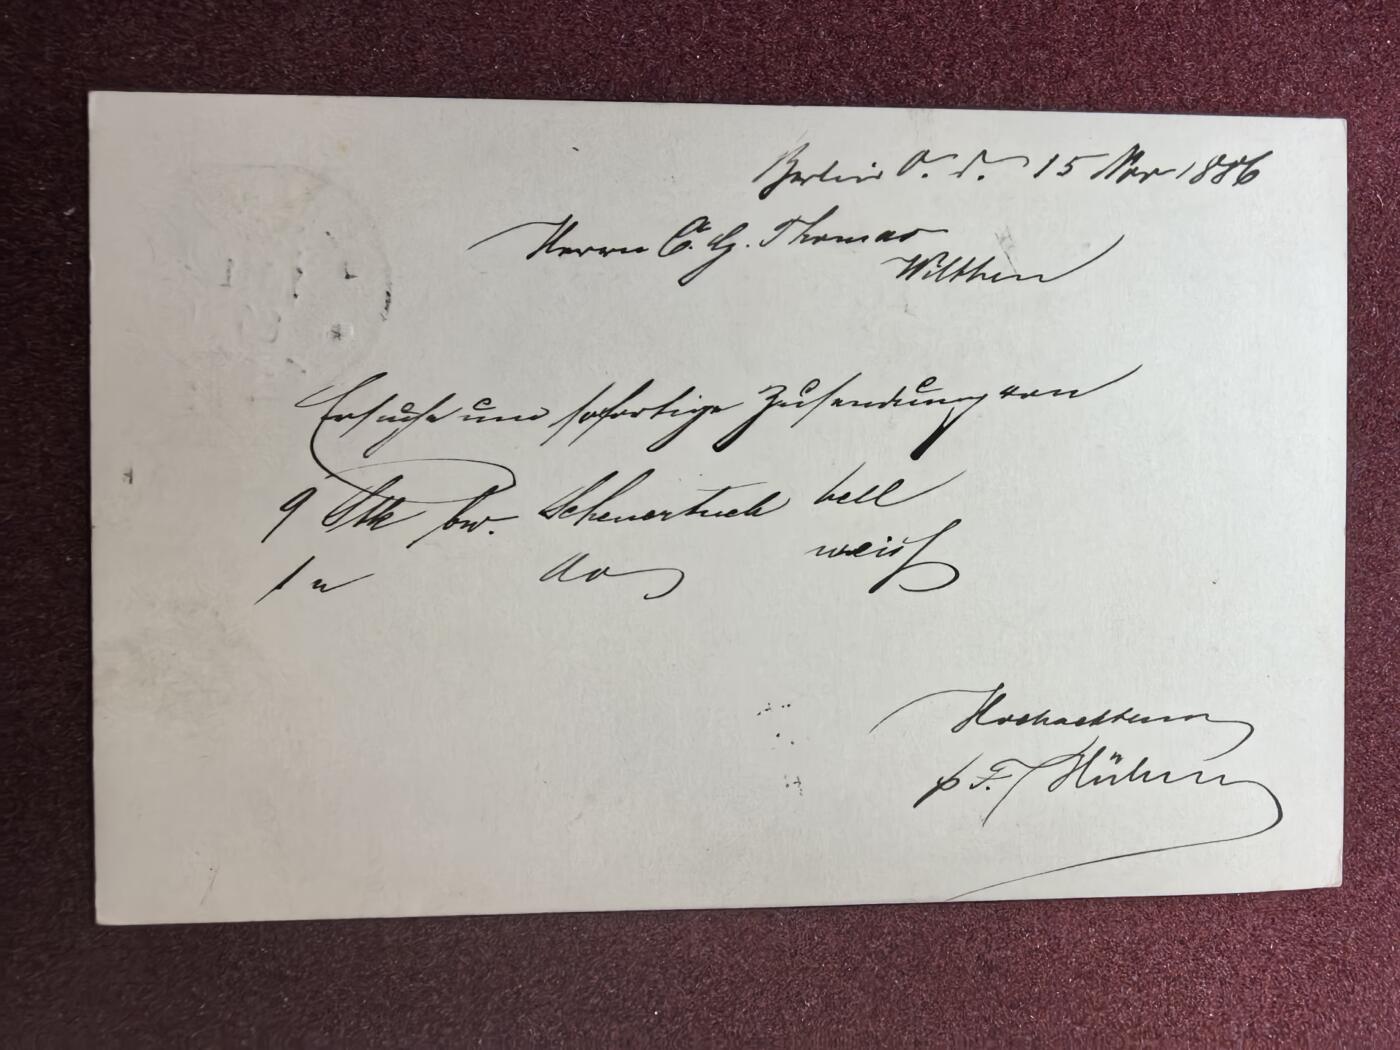 Berlin O. d. 15 Nov 1886
Herrn C. G. Thomas
Wilthen
Ersuche um sofortige Zusendung von
9 Stk bw. Scheuertuch hell
1 " do weiß
Hochachtung
p F. Hühn